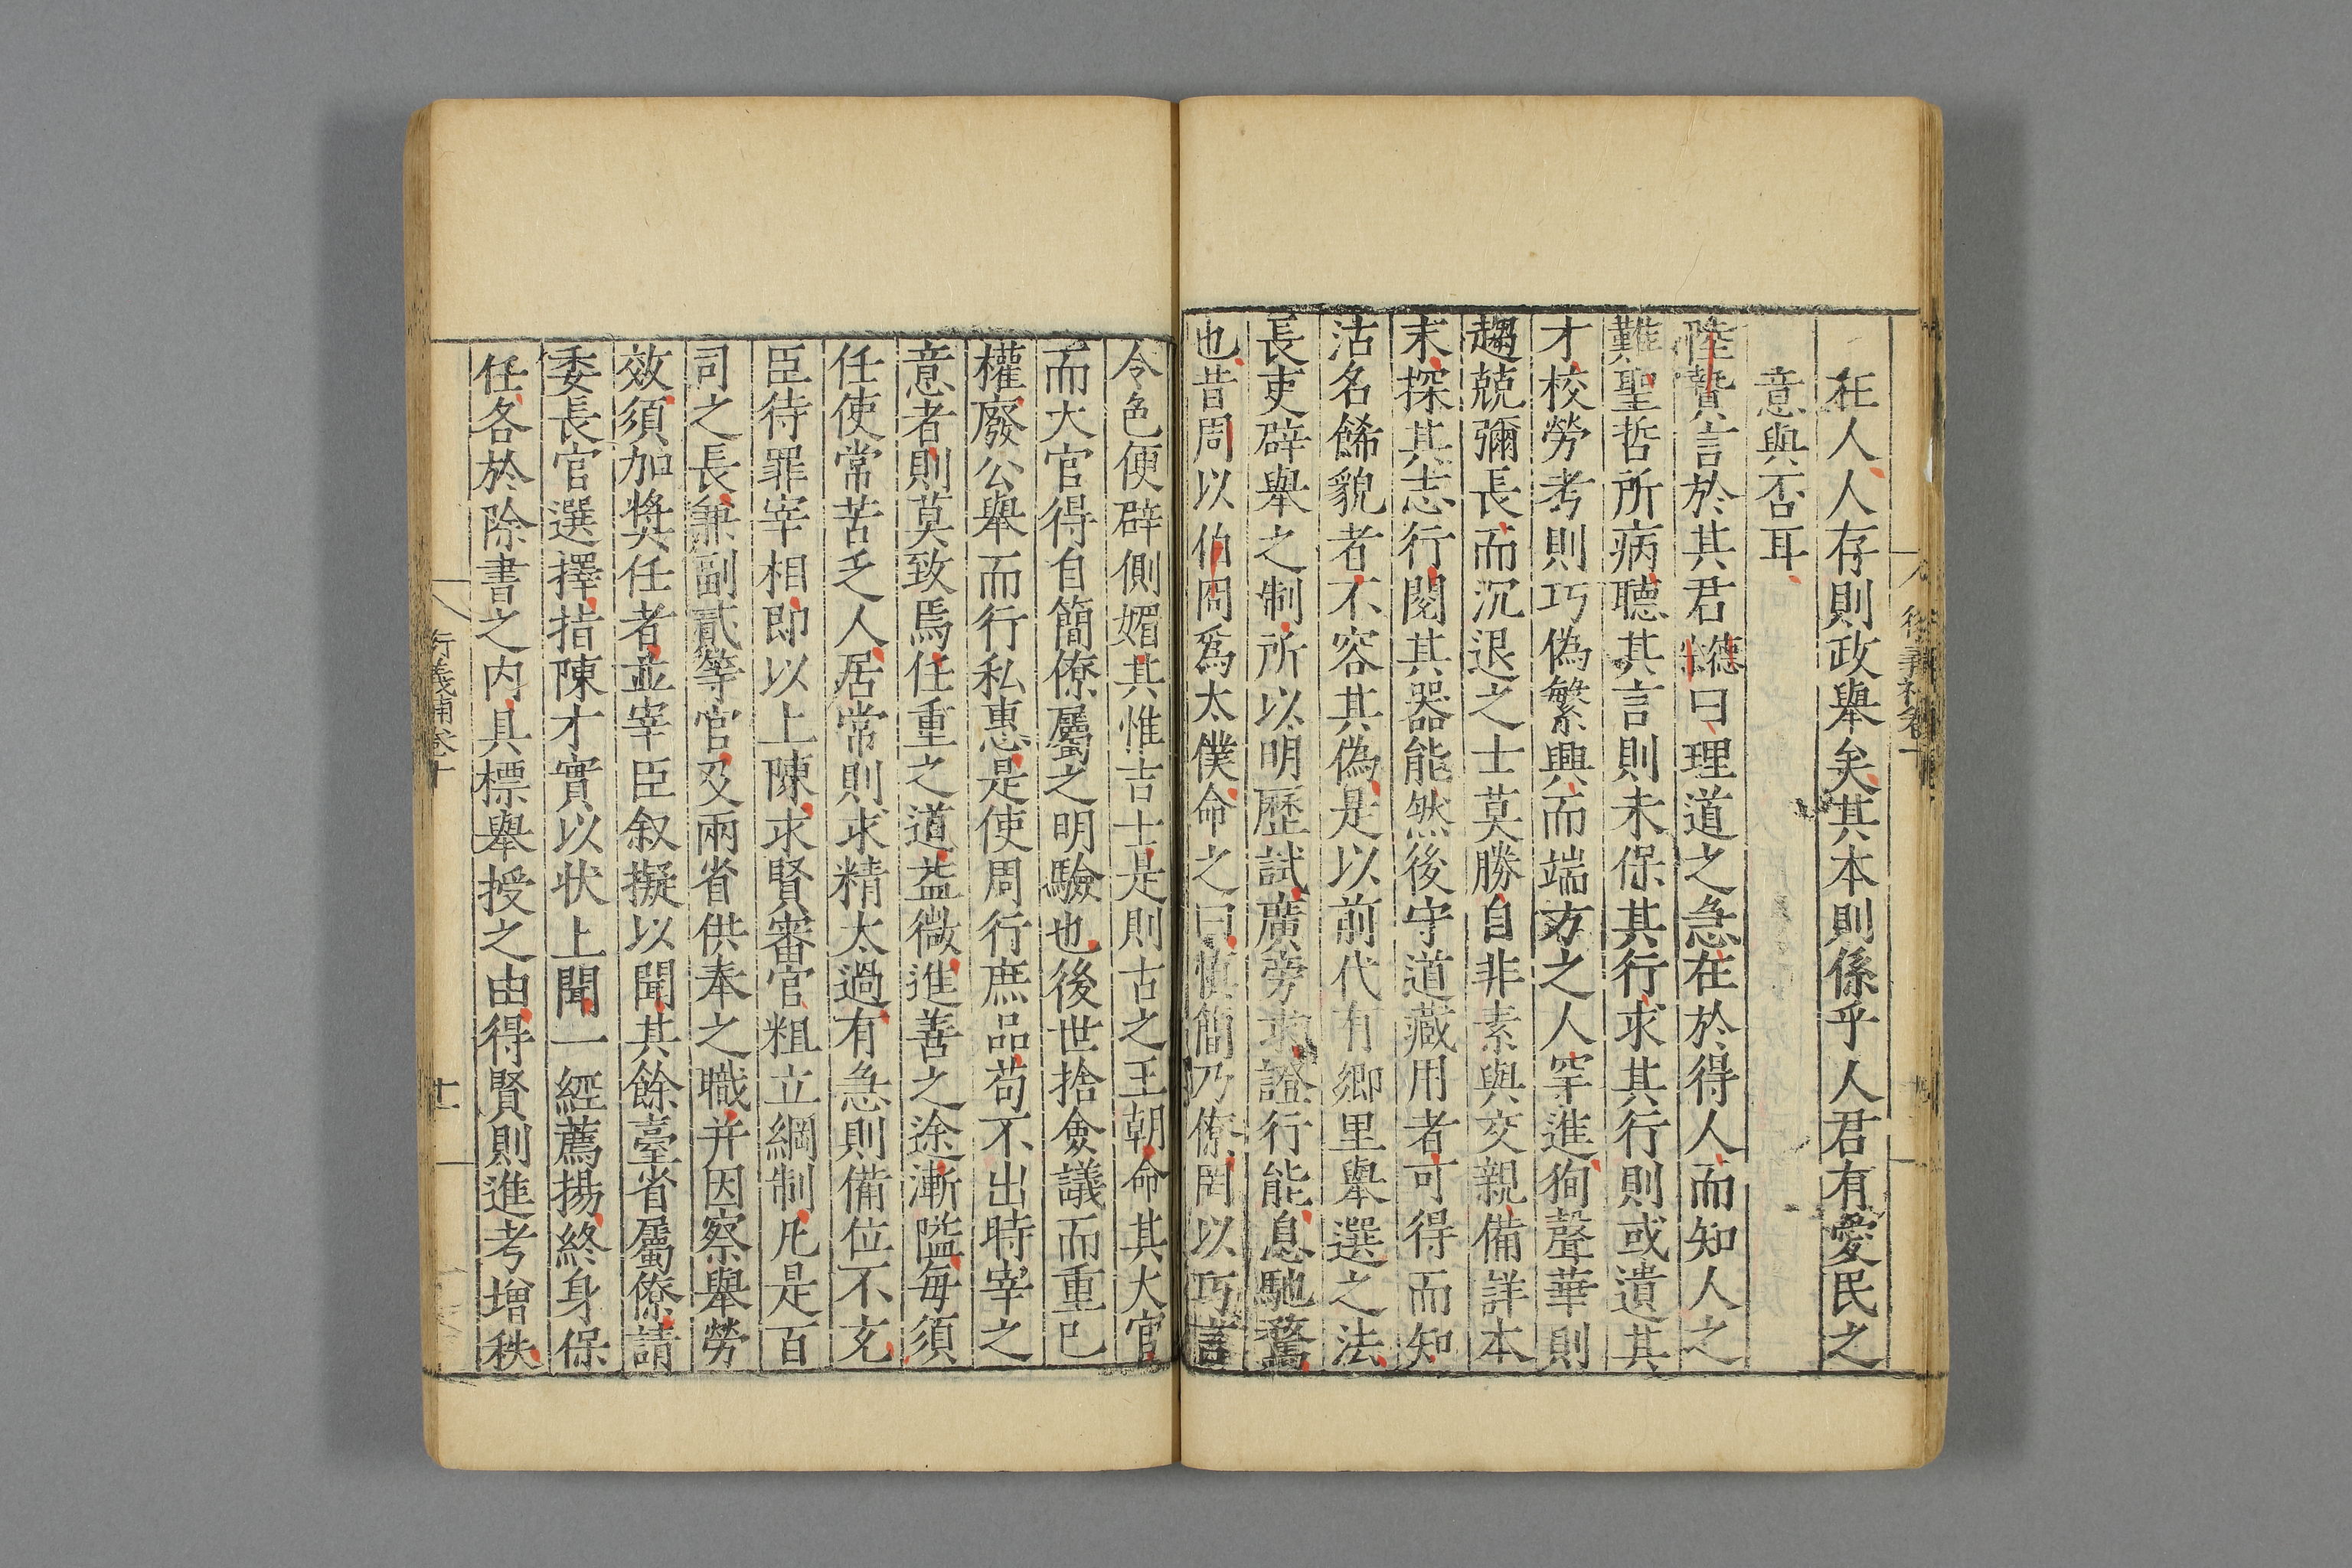 在人人存則政舉矣其本則係乎人君有愛民之
意與否耳
陸贄言於其君德宗曰理道之急在於得人而知人之
難聖哲所病聽其言則未保其行求其行則或遺其
才校勞考則巧偽繁興而端方之人罕進徇聲華則
趨兢彌長而沉退之士莫勝自非素與交親備詳本
末探其志行閱其器能然後守道藏用者可得而知
沽名餙貌者不容其偽是以前代有鄉里舉選之法
長吏辟舉之制所以明歷試廣旁求證行能息馳騖
也昔周以伯冏爲太僕命之曰慎簡乃僚罔以巧言
令色便辟側媚其惟吉士是則古之王朝命其大官
而大官得自簡僚屬之明驗也後世捨僉議而重己
權廢公舉而行私惠是使周行庶品苟不出時宰之
意者則莫致焉任重之道益微進善之途漸隘每須
任使常苦乏人居常則求精太過有急則備位不充
臣待罪宰相即以上陳求賢審官粗立綱制凡是百
司之長兼副貳等官及兩省供奉之職并因察舉勞
效須加奬任者並宰臣叙擬以聞其餘臺省屬僚請
委長官選擇指陳才實以状上聞一經薦揚終身保
任各於除書之内具標舉授之由得賢則進考增秩
衍義補卷十
十一